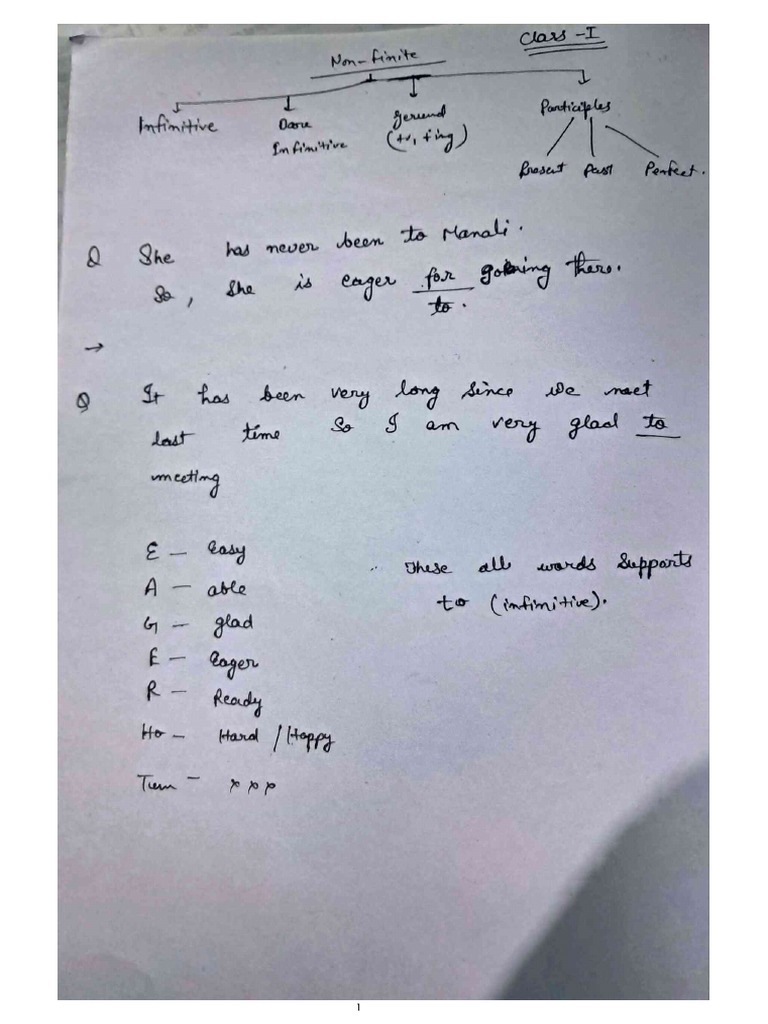 Class - I
Non-finite
Infinitive Bare Infinitive Gerund (+v, +ing) Participles
Present Past Perfect.
Q She has never been to Manali.
So, she is eager for going there.
to.
→
Q It has been very long since we meet
last time So I am very glad to
meeting
E - Easy
A - able
G - glad
E - Eager
R - Ready
Ho - Hard / Happy
Tum - x x x
These all words supports
to (infinitive).
1